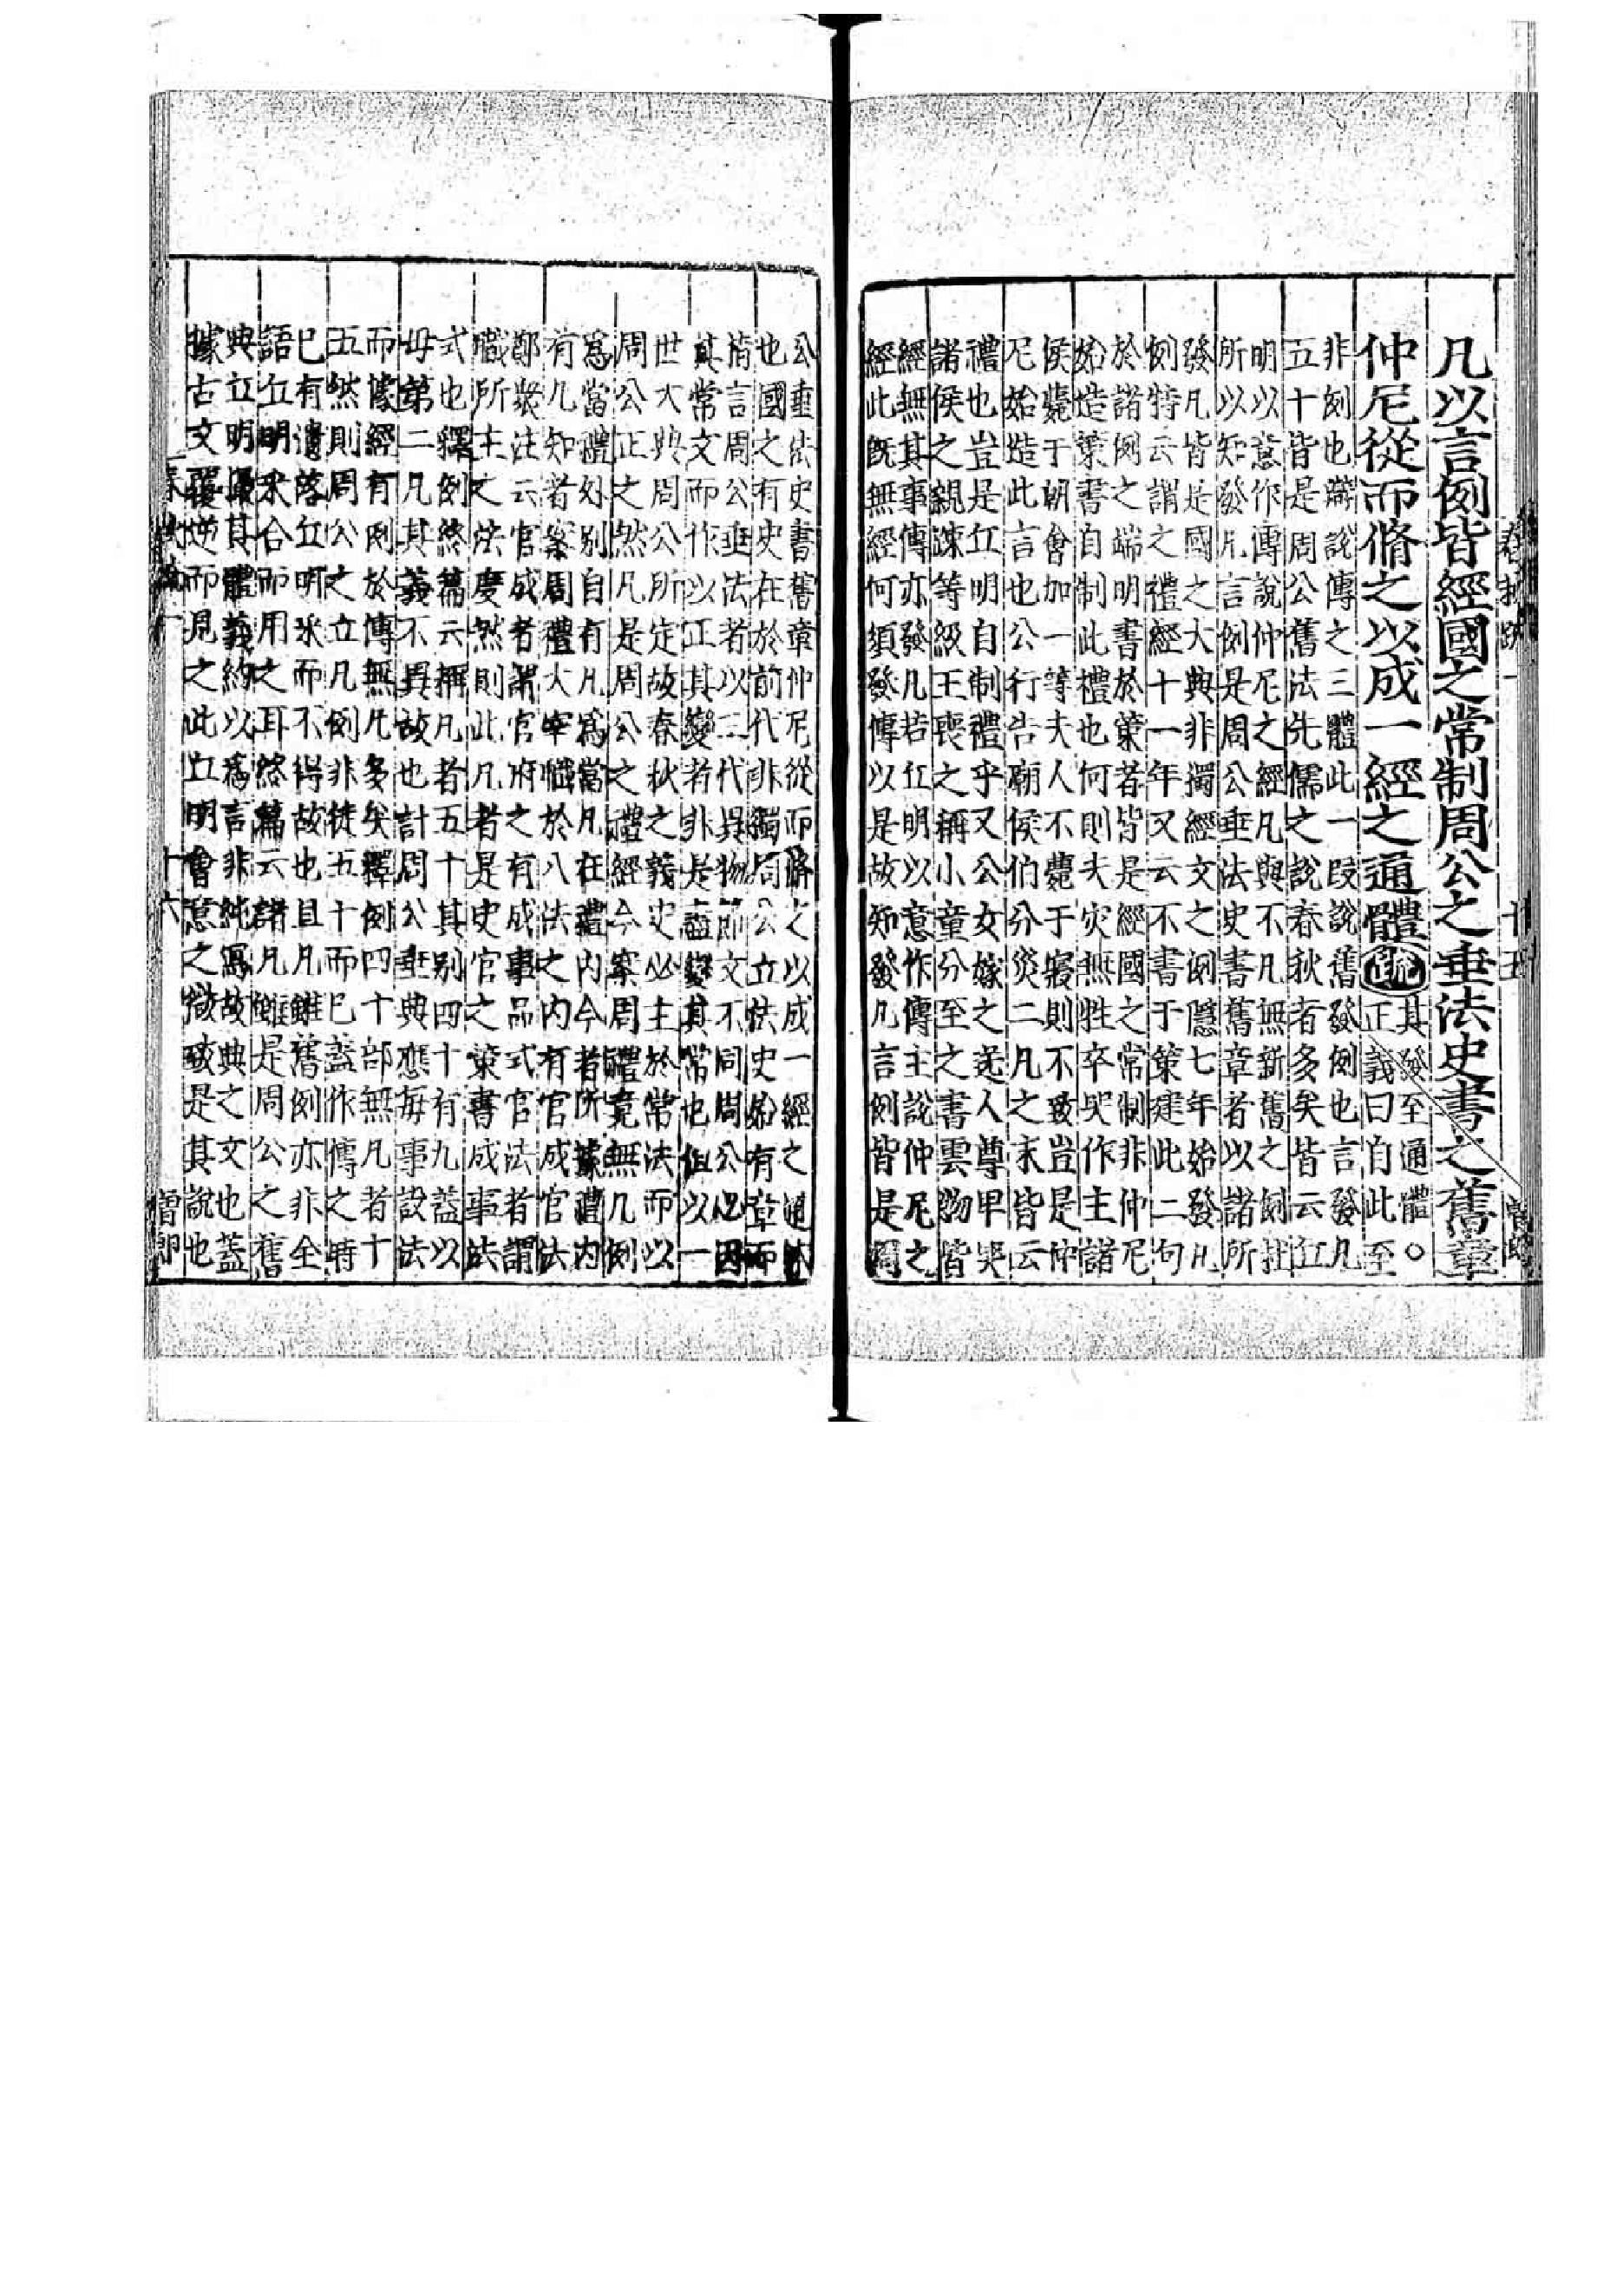 凡以言例皆經國之常制周公之垂法史書之舊章
仲尼從而脩之以成一經之通體
疏
其發至通體○
正義曰自此至
非例也辯說傳之三體此一段說舊發例也言發凡
五十皆是周公舊法先儒之說春秋者多矣皆云丘
明以意作傳說仲尼之經凡與不凡無新舊之例杜
所以知發凡言例是周公垂法史書舊章者以諸所
發凡皆是國之大典非獨經文之例隱七年始發凡
例特云謂之禮經十一年又云不書于策建此二句
於諸例之端明書於策者皆是經國之常制非仲尼
始造策書自制此禮也何則夫灾無牲卒哭作主諸
侯薨于朝會加一等夫人不薨于寢則不致豈是仲
尼始造此言也公行告廟侯伯分災二凡之末皆云
禮也豈是丘明自制禮乎又公女嫁之送人尊卑哭
諸侯之親疎等級王喪之稱小童分至之書雲物皆
經無其事傳亦發凡若丘明以意作傳主說仲尼之
經此既無經何須發傳以是故知發凡言例皆是周
公垂法史書舊章仲尼從而脩之以成一經之通體
也國之有史在於前代非獨周公立法史始有章而
指言周公垂法者以三代異物節文不同周公必因
其常文而作以正其變者非是盡變其常也但以一
世大典周公所定故春秋之義史必主於常法而以
周公正之然凡是周公之禮經今案周禮竟無凡例
爲當禮外別自有凡爲當凡在禮内今者所據禮内
有凡知者案周禮大宰職於八法之内有官成官法
鄭衆注云官成者謂官府之有成事品式官法者謂
職所主之法度然則此凡者是史官之策書成事法
式也釋例終篇云稱凡者五十其別四十有九蓋以
母弟二凡其義不異故也計周公垂典應每事設法
而據經有例於傳無凡多矣釋例四十部無凡者十
五然則周公之立凡例非徒五十而已蓋作傳之時
已有遺落丘明采而不得故也且凡雖舊例亦非全
語丘明采合而用之耳終篇云諸凡雖是周公之舊
典丘明撮其體義約以爲言非純寫故典之文也蓋
據古文覆逆而見之此丘明會意之微致是其說也
十六